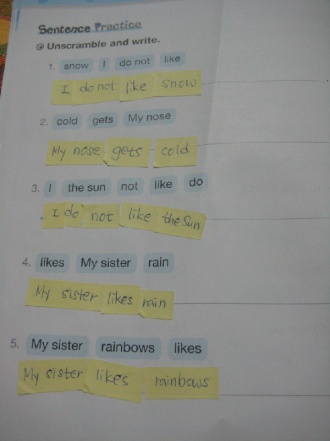 Sentence Practice
Unscramble and write.
1. snow I do not like
I do not like snow
2. cold gets My nose
My nose gets cold
3. I the sun not like do
I do not like the sun
4. likes My sister rain
My sister likes rain
5. My sister rainbows likes
My sister likes rainbows